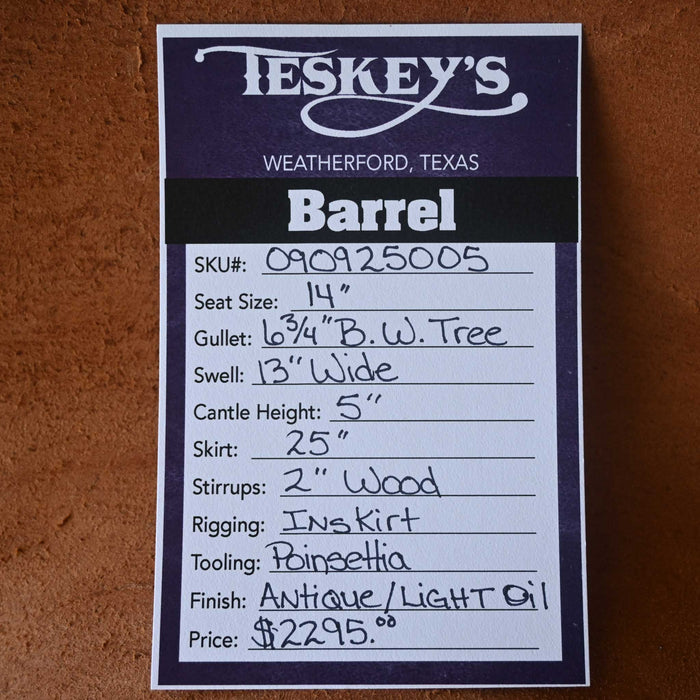 TESKEY'S
WEATHERFORD, TEXAS
Barrel
SKU#: 090925005
Seat Size: 14"
Gullet: 6 3/4" B.W. Tree
Swell: 13" Wide
Cantle Height: 5"
Skirt: 25"
Stirrups: 2" Wood
Rigging: Inskirt
Tooling: Poinsettia
Finish: Antique/Light Oil
Price: $2295.00